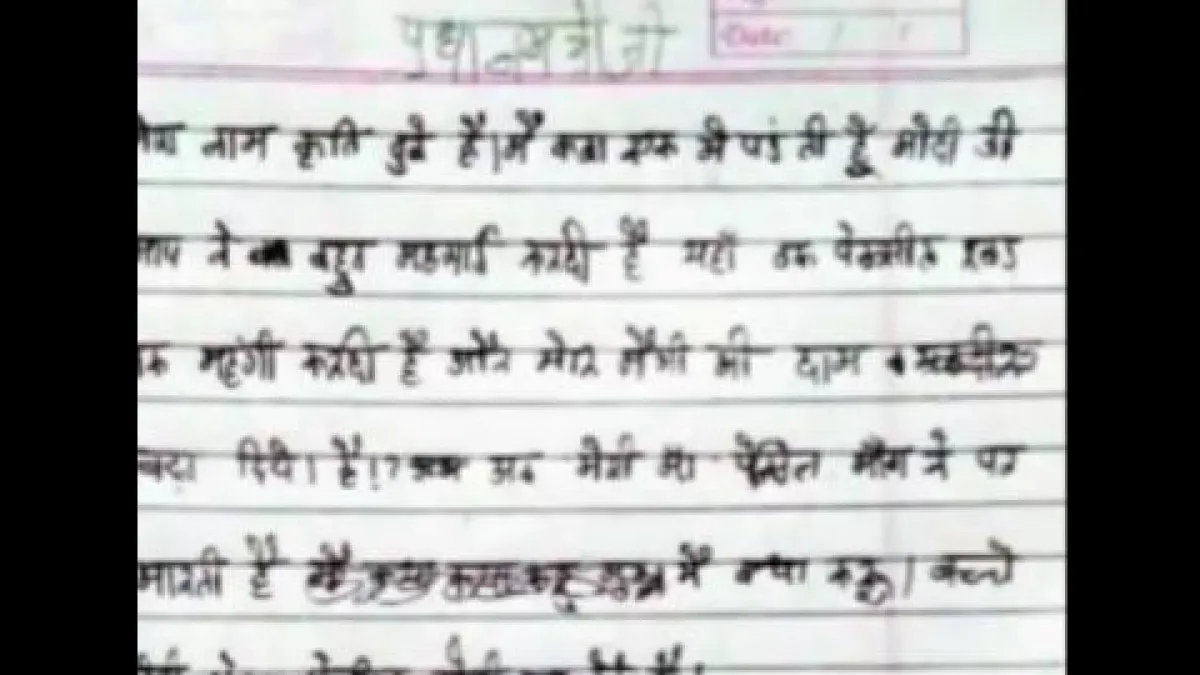 प्रधानमंत्री जी
Date / /
मेरा नाम कृति दुबे है। मैं कक्षा एक मे पडंती हूँ मोदी जी
आप ने बहुत महगाई करदी है यहाँ तक पेन्सील रबड
तक महंगी करदी है और मेरि मैगी भी दाम
बढा दिये। है। अब मेरी माँ पेंसिल माँग ने पर
मारती है मैं क्या करू। बच्चे